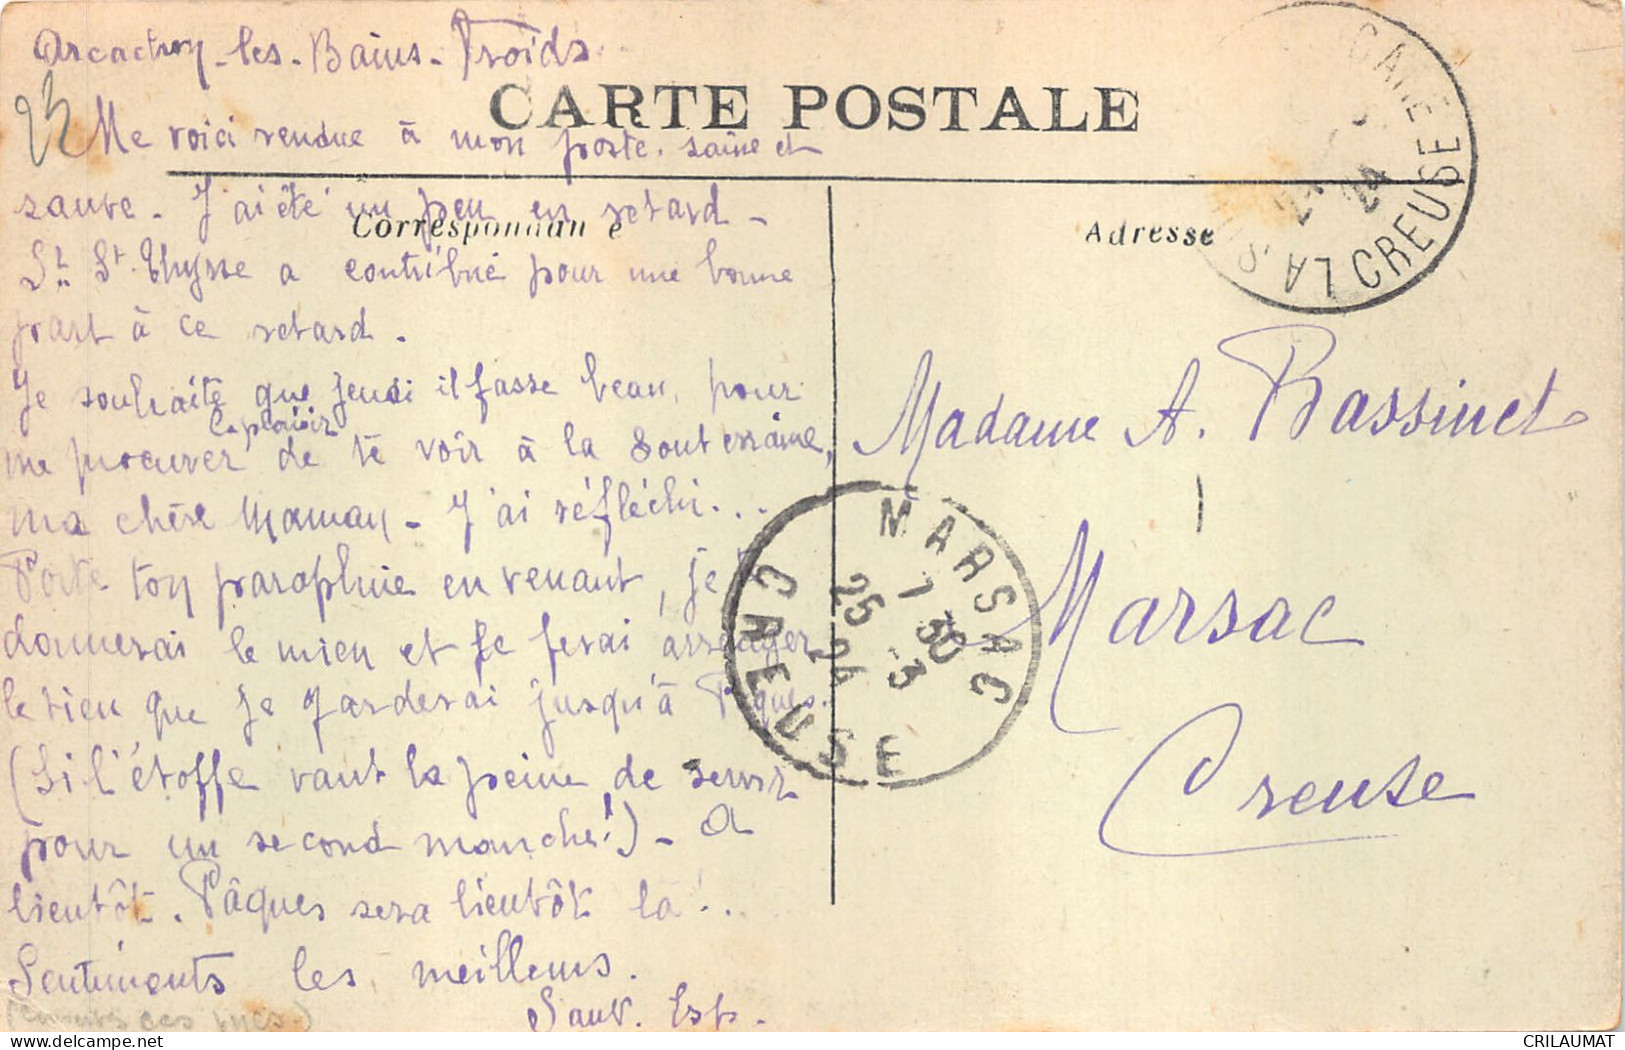 Arcachon-les-Bains-Froids
23
CARTE POSTALE
Me voici rendue à mon poste. saine et
sauve. J'ai été un peu en retard -
St. Thysse a contribué pour une bonne
part à ce retard.
Je souhaite que jeudi il fasse beau, pour
le plaisir
me procurer de te voir à la Souterraine,
ma chère Maman - J'ai réfléchi...
Porte ton parapluie en venant, je
donnerai le mien et je ferai arranger
le tien que je garderai jusqu'à Pâques.
(Si l'étoffe vaut la peine de servir
pour un second manche!) - A
bientôt. Pâques sera bientôt là!..
Sentiments les meilleurs.
Correspondan e
Adresse
GARE
LA S
CREUSE
24
Madame A. Bassinet
Marsac
Creuse
MARSAC
7 30
25 -3
24
CREUSE
www.delcampe.net
CRILAUMAT